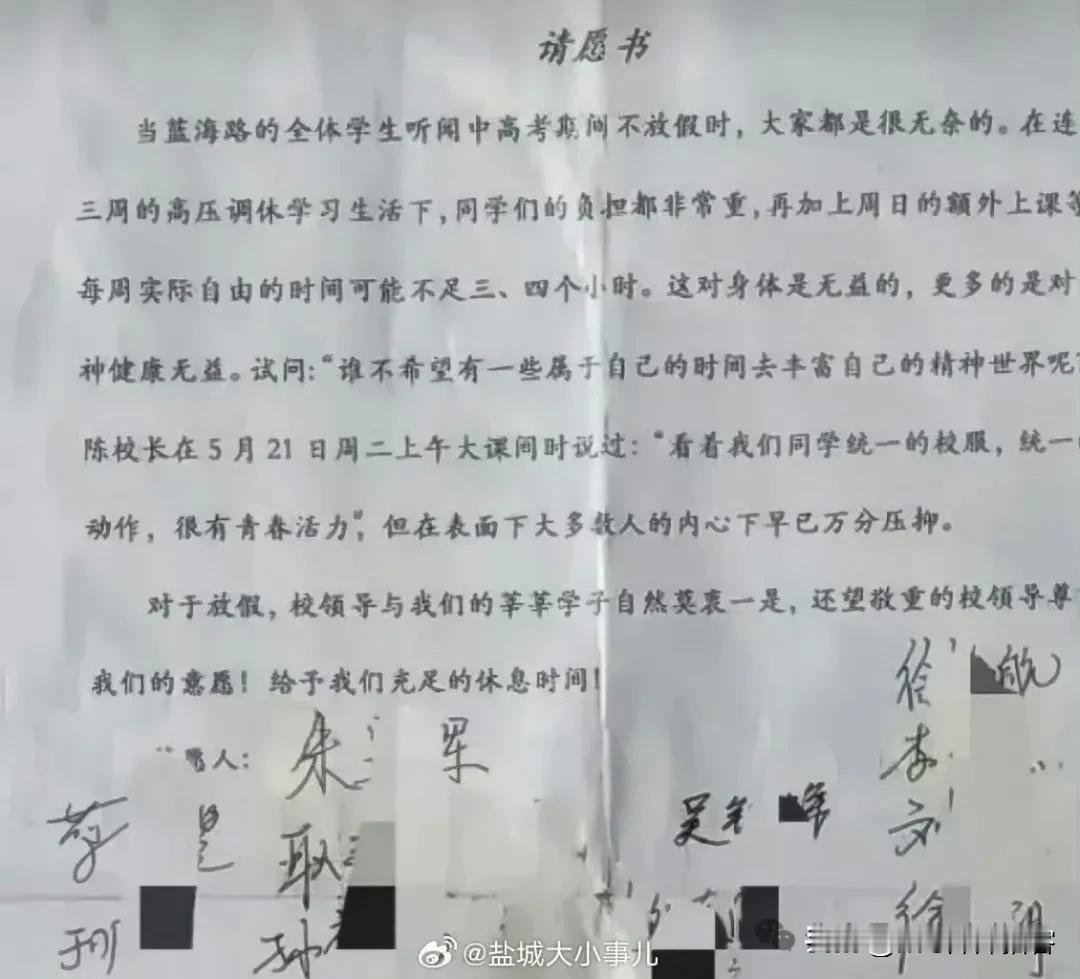 请愿书
当蓝海路的全体学生听闻中高考期间不放假时，大家都是很无奈的。在连
三周的高压调休学习生活下，同学们的负担都非常重，再加上周日的额外上课等
每周实际自由的时间可能不足三、四个小时。这对身体是无益的，更多的是对
神健康无益。试问：“谁不希望有一些属于自己的时间去丰富自己的精神世界呢
陈校长在5月21日周二上午大课间时说过：“看着我们同学统一的校服，统一
动作，很有青春活力”，但在表面下大多数人的内心下早已万分压抑。
对于放假，校领导与我们的莘莘学子自然莫衷一是，还望敬重的校领导尊
我们的意愿！给予我们充足的休息时间！
徐
人：朱
李
吴
刘
耿
徐
孙
@盐城大小事儿